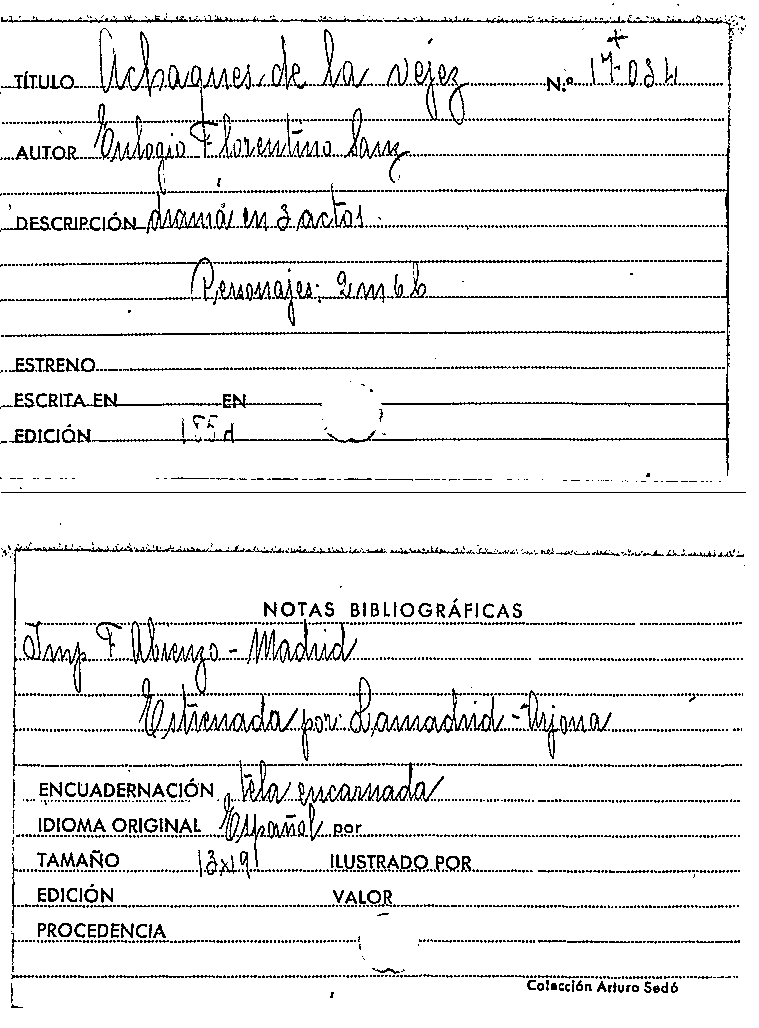 TÍTULO Achaques de la vejez N.º 17-034
AUTOR Eulogio Florentino Sanz
DESCRIPCIÓN drama en 3 actos.
Personajes: 2 m 6 h
ESTRENO
ESCRITA EN EN
EDICIÓN
NOTAS BIBLIOGRÁFICAS
Imp F Abienzo - Madrid
Estrenada por: Lamadrid - Arjona
ENCUADERNACIÓN tela encarnada
IDIOMA ORIGINAL Español por
TAMAÑO 13x19 ILUSTRADO POR
EDICIÓN VALOR
PROCEDENCIA
Colección Arturo Sedó